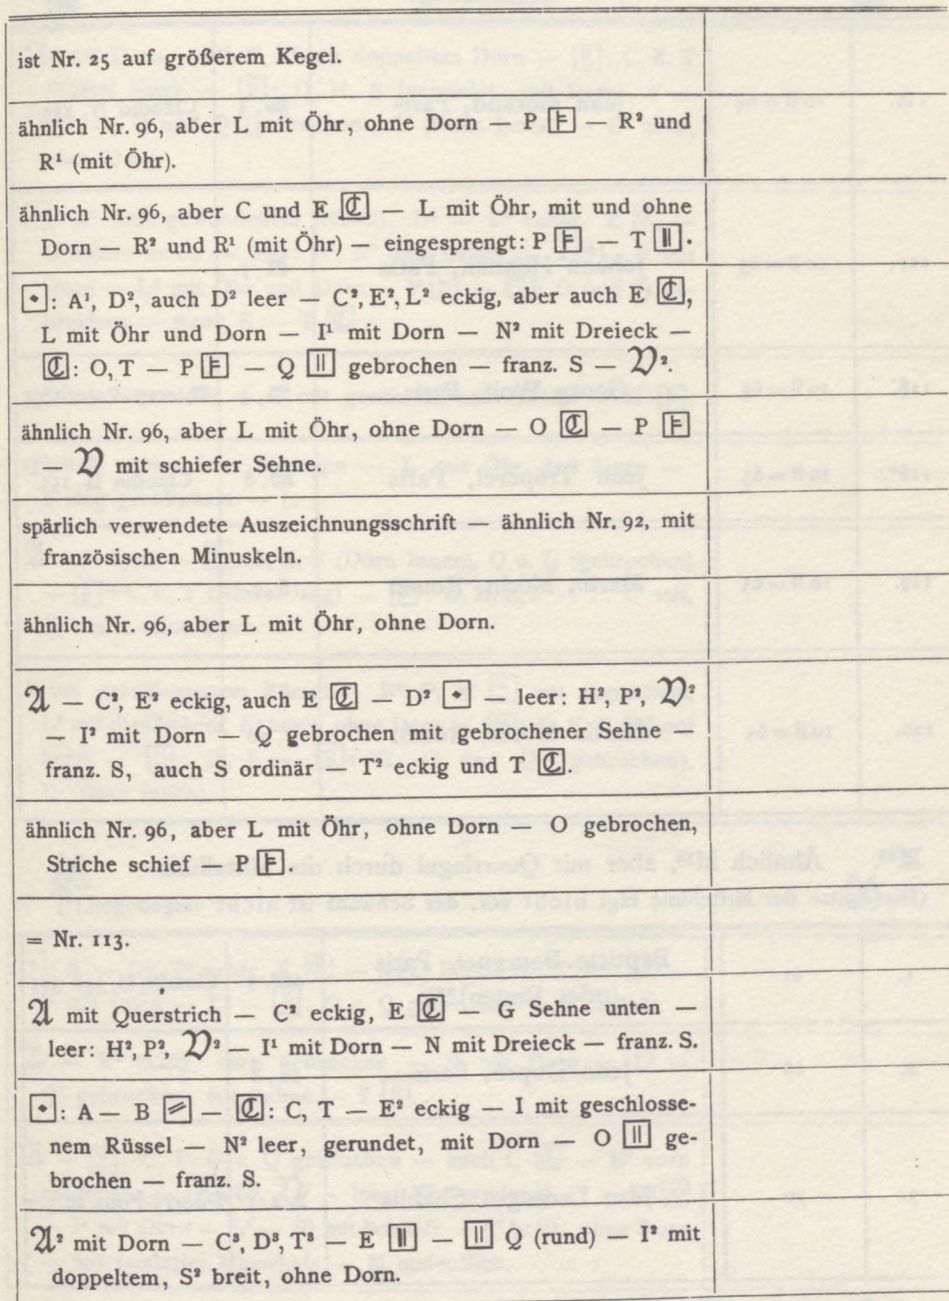 ist Nr. 25 auf größerem Kegel.
ähnlich Nr. 96, aber L mit Öhr, ohne Dorn — P [F] — R² und
R¹ (mit Öhr).
ähnlich Nr. 96, aber C und E [ℭ] — L mit Öhr, mit und ohne
Dorn — R² und R¹ (mit Öhr) — eingesprengt: P [F] — T [‖].
[•]: A¹, D², auch D² leer — C², E², L² eckig, aber auch E [ℭ],
L mit Öhr und Dorn — I¹ mit Dorn — N² mit Dreieck —
[ℭ]: O, T — P [F] — Q [‖] gebrochen — franz. S — 𝔙².
ähnlich Nr. 96, aber L mit Öhr, ohne Dorn — O [ℭ] — P [F]
— 𝔙 mit schiefer Sehne.
spärlich verwendete Auszeichnungsschrift — ähnlich Nr. 92, mit
französischen Minuskeln.
ähnlich Nr. 96, aber L mit Öhr, ohne Dorn.
𝔄 — C², E² eckig, auch E [ℭ] — D² [•] — leer: H², P², 𝔙²
— I² mit Dorn — Q gebrochen mit gebrochener Sehne —
franz. S, auch S ordinär — T² eckig und T [ℭ].
ähnlich Nr. 96, aber L mit Öhr, ohne Dorn — O gebrochen,
Striche schief — P [F].
= Nr. 113.
𝔄 mit Querstrich — C² eckig, E [ℭ] — G Sehne unten —
leer: H², P², 𝔙² — I¹ mit Dorn — N mit Dreieck — franz. S.
[•]: A — B [⫽] — [ℭ]: C, T — E² eckig — I mit geschlosse-
nem Rüssel — N² leer, gerundet, mit Dorn — O [‖] ge-
brochen — franz. S.
𝔄² mit Dorn — C³, D³, T³ — E [‖] — [‖] Q (rund) — I² mit
doppeltem, S² breit, ohne Dorn.